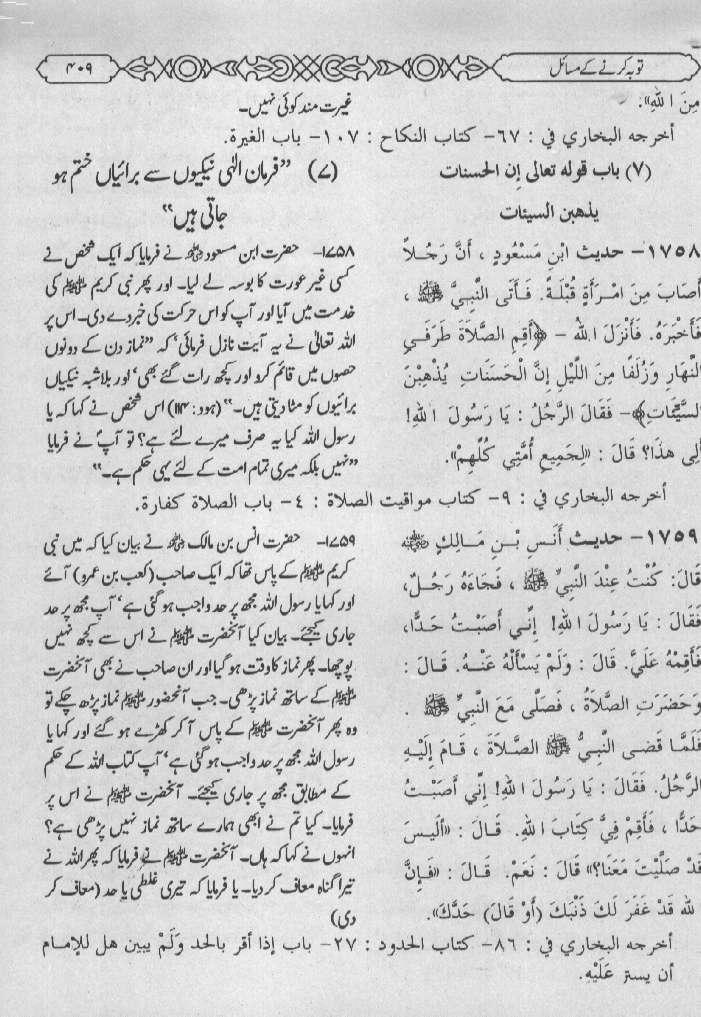 توبہ کرنے کے مسائل
۴۰۹
مِنَ اللهِ».
أخرجه البخاري في : ٦٧- كتاب النكاح : ١٠٧- باب الغيرة.
(٧) باب قوله تعالى إن الحسنات
يذهبن السيئات
١٧٥٨- حديث ابْنِ مَسْعُودٍ ، أَنَّ رَجُلاً
أَصَابَ مِنَ امْرَأَةٍ قُبْلَةً. فَأَتَى النَّبِيَّ ﷺ ،
فَأَخْبَرَهُ. فَأَنْزَلَ اللهُ - ﴿أَقِمِ الصَّلاَةَ طَرَفَيِ
النَّهَارِ وَزُلَفًا مِنَ اللَّيْلِ إِنَّ الْحَسَنَاتِ يُذْهِبْنَ
السَّيِّئَاتِ﴾- فَقَالَ الرَّجُلُ : يَا رَسُولَ اللهِ!
أَلِي هذَا؟ قَالَ : «لِجَمِيعِ أُمَّتِي كُلِّهِمْ».
أخرجه البخاري في : ٩- كتاب مواقيت الصلاة : ٤- باب الصلاة كفارة.
١٧٥٩- حديث أَنَسِ بْنِ مَالِكٍ
قَالَ: كُنْتُ عِنْدَ النَّبِيِّ ﷺ ، فَجَاءَهُ رَجُلٌ،
فَقَالَ : يَا رَسُولَ اللهِ! إِنِّي أَصَبْتُ حَدًّا،
فَأَقِمْهُ عَلَيَّ. قَالَ : وَلَمْ يَسْأَلْهُ عَنْهُ. قَالَ :
وَحَضَرَتِ الصَّلاَةُ ، فَصَلَّى مَعَ النَّبِيِّ ﷺ .
فَلَمَّا قَضَى النَّبِيُّ ﷺ الصَّلاَةَ ، قَامَ إِلَيْهِ
الرَّجُلُ. فَقَالَ : يَا رَسُولَ اللهِ! إِنِّي أَصَبْتُ
حَدًّا ، فَأَقِمْ فِيَّ كِتَابَ اللهِ. قَالَ : «أَلَيْسَ
قَدْ صَلَّيْتَ مَعَنَا؟» قَالَ : نَعَمْ. قَالَ : «فَإِنَّ
اللهَ قَدْ غَفَرَ لَكَ ذَنْبَكَ (أَوْ قَالَ) حَدَّكَ».
غیرت مند کوئی نہیں۔
(۷) ”فرمان الٰہی نیکیوں سے برائیاں ختم ہو
جاتی ہیں“
۱۷۵۸۔ حضرت ابن مسعودؓ نے فرمایا کہ ایک شخص نے
کسی غیر عورت کا بوسہ لے لیا۔ اور پھر نبی کریم ﷺ کی
خدمت میں آیا اور آپ کو اس حرکت کی خبر دے دی۔ اس پر
اللہ تعالیٰ نے یہ آیت نازل فرمائی‘ کہ ”نماز دن کے دونوں
حصوں میں قائم کرو اور کچھ رات گئے بھی‘ اور بلاشبہ نیکیاں
برائیوں کو مٹا دیتی ہیں۔“ (ہود: ۱۱۴) اس شخص نے کہا کہ یا
رسول اللہ کیا یہ صرف میرے لئے ہے؟ تو آپؐ نے فرمایا
”نہیں بلکہ میری تمام امت کے لئے یہی حکم ہے۔“
۱۷۵۹۔ حضرت انس بن مالکؓ نے بیان کیا کہ میں نبی
کریم ﷺ کے پاس تھا کہ ایک صاحب (کعب بن عمرو) آئے
اور کہا یا رسول اللہ مجھ پر حد واجب ہو گئی ہے‘ آپ مجھ پر حد
جاری کیجئے۔ بیان کیا آنحضرت ﷺ نے اس سے کچھ نہیں
پوچھا۔ پھر نماز کا وقت ہو گیا اور ان صاحب نے بھی آنحضرت
ﷺ کے ساتھ نماز پڑھی۔ جب آنحضور ﷺ نماز پڑھ چکے تو
وہ پھر آنحضرت ﷺ کے پاس آ کر کھڑے ہو گئے اور کہا یا
رسول اللہ مجھ پر حد واجب ہو گئی ہے‘ آپ کتاب اللہ کے حکم
کے مطابق مجھ پر جاری کیجئے۔ آنحضرت ﷺ نے اس پر
فرمایا۔ کیا تم نے ابھی ہمارے ساتھ نماز نہیں پڑھی ہے؟
انہوں نے کہا کہ ہاں۔ آنحضرت ﷺ نے فرمایا کہ پھر اللہ نے
تیرا گناہ معاف کر دیا۔ یا فرمایا کہ تیری غلطی یا حد (معاف کر
دی)
أخرجه البخاري في : ٨٦- كتاب الحدود : ٢٧- باب إذا أقر بالحد وَلَمْ يبين هل للإمام
أن يستر عَلَيْهِ.